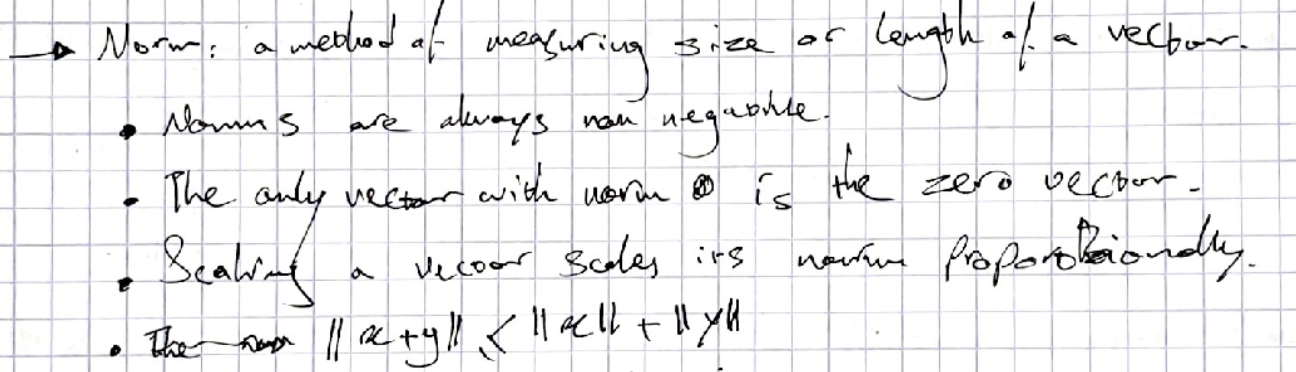 → Norm: a method of measuring size or length of a vector.
• Norms are always non negative.
• The only vector with norm 0 is the zero vector.
• Scaling a vector scales its norm proportionally.
• The norm ||x+y|| ≤ ||x|| + ||y||